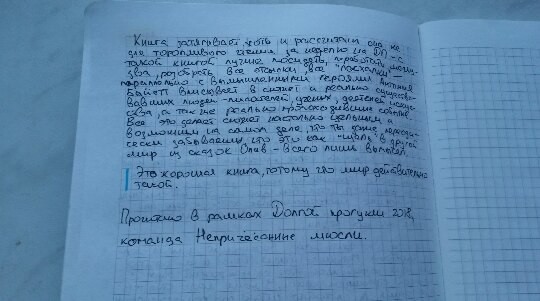 Книга затягивает, хоть и рассчитана она не
для торопливого чтения за неделю на ДП - с
такой книгой лучше посидеть, поработать месяц-
два, разобрать все отсылки, все "пасхалки" -
параллельно с вымышленными героями Антония
Байетт вписывает в сюжет и реально существо-
вавших людей - писателей, учёных, деятелей искус-
ства, а также реально происходившие события.
Все это делает сюжет настолько цельным и
возможным на самом деле, что ты даже периоди-
чески забываешь, что эти как "щель" в другой
мир из сказок Олив - всего лишь вымысел.
Это хорошая книга, потому что мир действительно
такой.
Прочитано в рамках Долгой прогулки 2018,
команда Непричёсанные мысли.